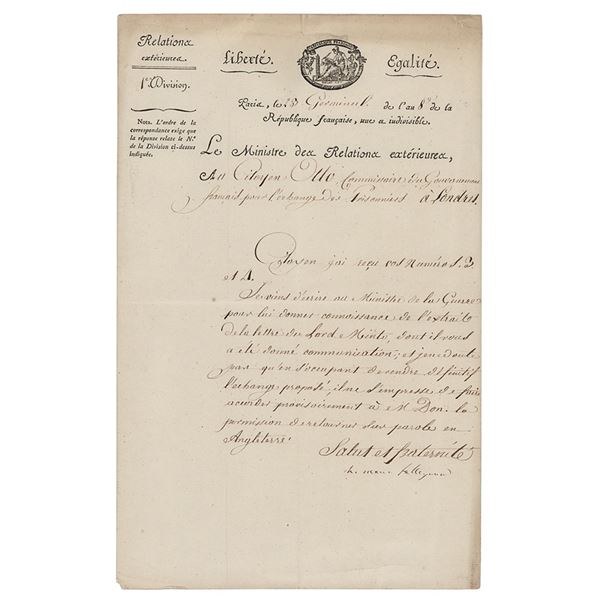 Relations
extérieures
1.re Division.
NOTA. L'ordre de la
correspondance exige que
la réponse relate le N.o
de la Division ci-dessus
indiquée.
Liberté.
Egalité.
Paris, le 23 Germinal de l'an 8e de la
République française, une et indivisible.
Le Ministre des Relations extérieures,
Au Citoyen Otto, Commissaire du Gouvernement
français pour l'échange des Prisonniers à Londres.
Citoyen j'ai reçu vos Numéros 3
et 4.
Je viens d'écrire au Ministre de la Guerre
pour lui donner connaissance de l'extrait
de la lettre du Lord Minto, dont il vous
a été donné communication; et je ne doute
pas qu'en s'occupant de rendre définitif
l'échange proposé, il ne s'empresse de faire
accorder provisoirement à M. Don. la
permission de retourner sur parole en
Angleterre.
Salut et fraternité
ch. mau. talleyrand